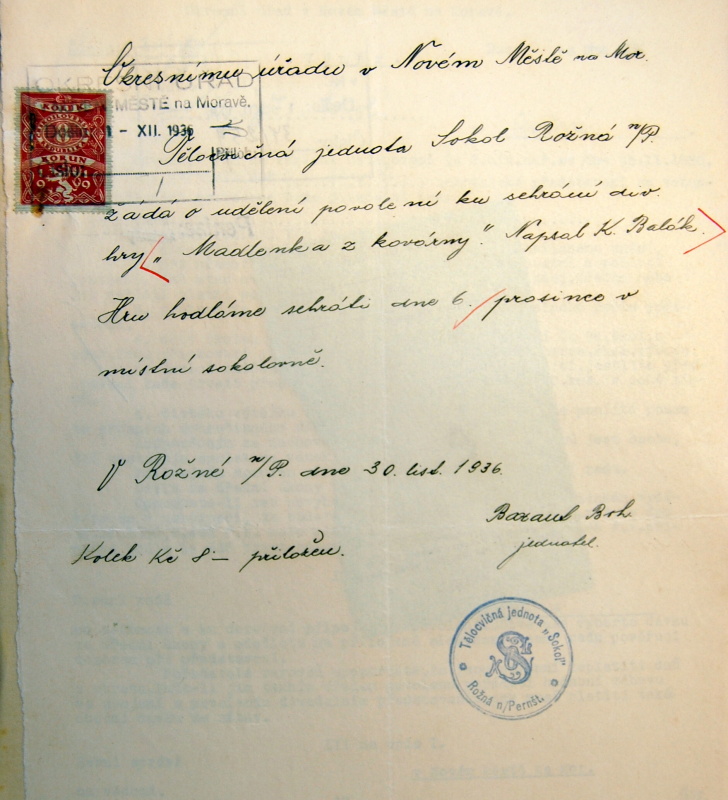 Okresnímu úřadu v Novém Městě na Mor.
OKRESNÍ ÚŘAD
MĚSTĚ na Moravě.
Došlo 1 - XII. 1936
KOLEK
KORUN
Tělocvičná jednota Sokol Rožná n/P.
žádá o udělení povolení ku sehrání div.
hry „Madlenka z kovárny." Napsal K. Balák.
Hru hodláme sehráti dne 6. prosince v
místní sokolovně.
V Rožné n/P. dne 30. list. 1936.
Boh.
jednatel.
Kolek Kč 8·– přiložen.
Tělocvičná jednota „Sokol"
Rožná n/Pernšt.